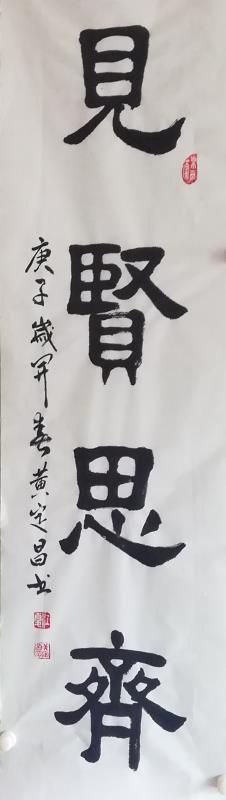 見賢思齊
庚子歲開春黃定昌書